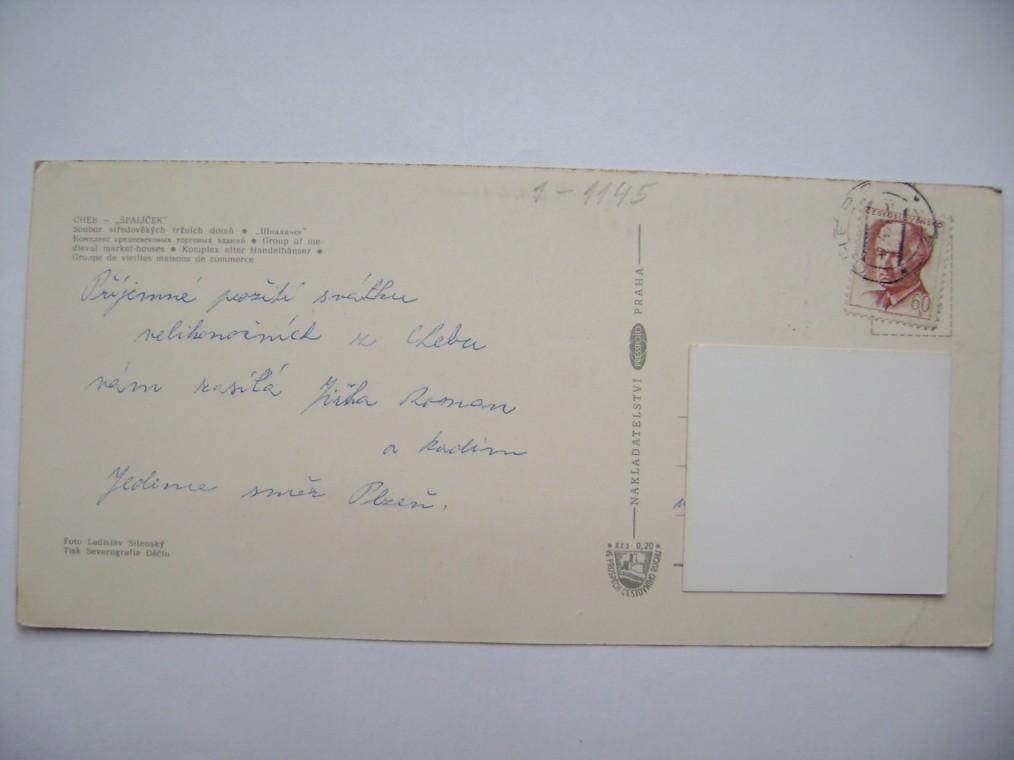 1 - 1145
CHEB — „ŠPALÍČEK"
Soubor středověkých tržních domů ● „Шпаличек"
Комплекс средневековых торговых зданий ● Group of me-
dieval market-houses ● Komplex alter Handelhäuser ●
Groupe de vieilles maisons de commerce
Příjemné pozití svátku
velikonočních z Chebu
vám zasílá Jiřka Roman
a
Jedeme směr Plzeň.
Foto Ladislav Sitenský
Tisk Severografia Děčín
NAKLADATELSTVÍ PRESSFOTO PRAHA
KčS 0,20
VE PROSPĚCH CESTOVNÍHO RUCHU
ČESKOSLOVENSKO
60